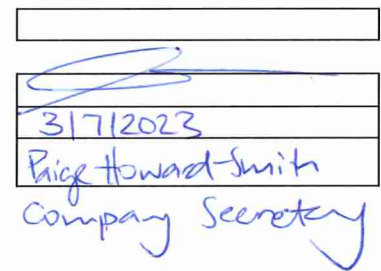 3/7/2023
Paige Howard-Smith
Company Secretary